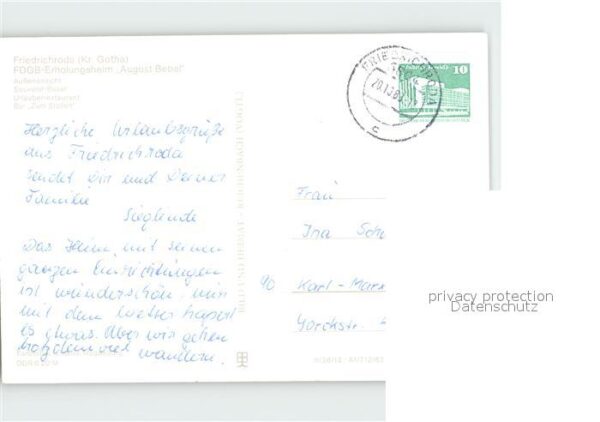 Friedrichroda (Kr. Gotha)
FDGB-Erholungsheim „August Bebel"
Außenansicht
Souvenir-Basar
Urlauberrestaurant
Bar
Herzliche Urlaubsgrüße
aus Friedrichroda
sendet Dir und Deiner
Familie
Sieglinde
Das Heim mit seinen
ganzen Einrichtungen
ist wunderschön, nur
mit dem Wetter hapert
es etwas. Aber wir gehen
trotzdem viel wandern.
BILD UND HEIMAT REICHENBACH (VOGTL)
FRIEDRICHRODA
10
Frau
Ina Sch
90 Karl-Marx
Yorckstr.
privacy protection
Datenschutz